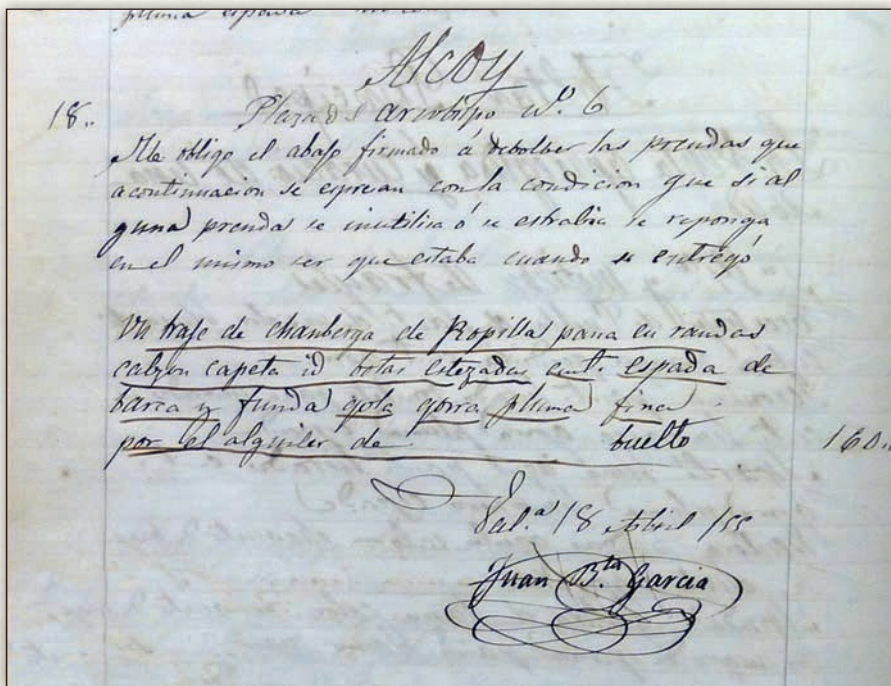 pluma espada
Alcoy
18..
Plaza dl arzobispo Nº 6
Me obligo el abajo firmado á debolber las prendas que
acontinuacion se espresan con la condicion que si al
guna prenda se inutilisa ó se estrabia se reponga
en el mismo ser que estaba cuando se entregó
Un traje de chanberga de Ropilla pana en randas
calzon capeta id botas estezadas cint. espada de
barca y funda gola gorra pluma fina
por el alquiler de buelto 160..
Val.ª 18 Abril /55
Juan B.ta Garcia